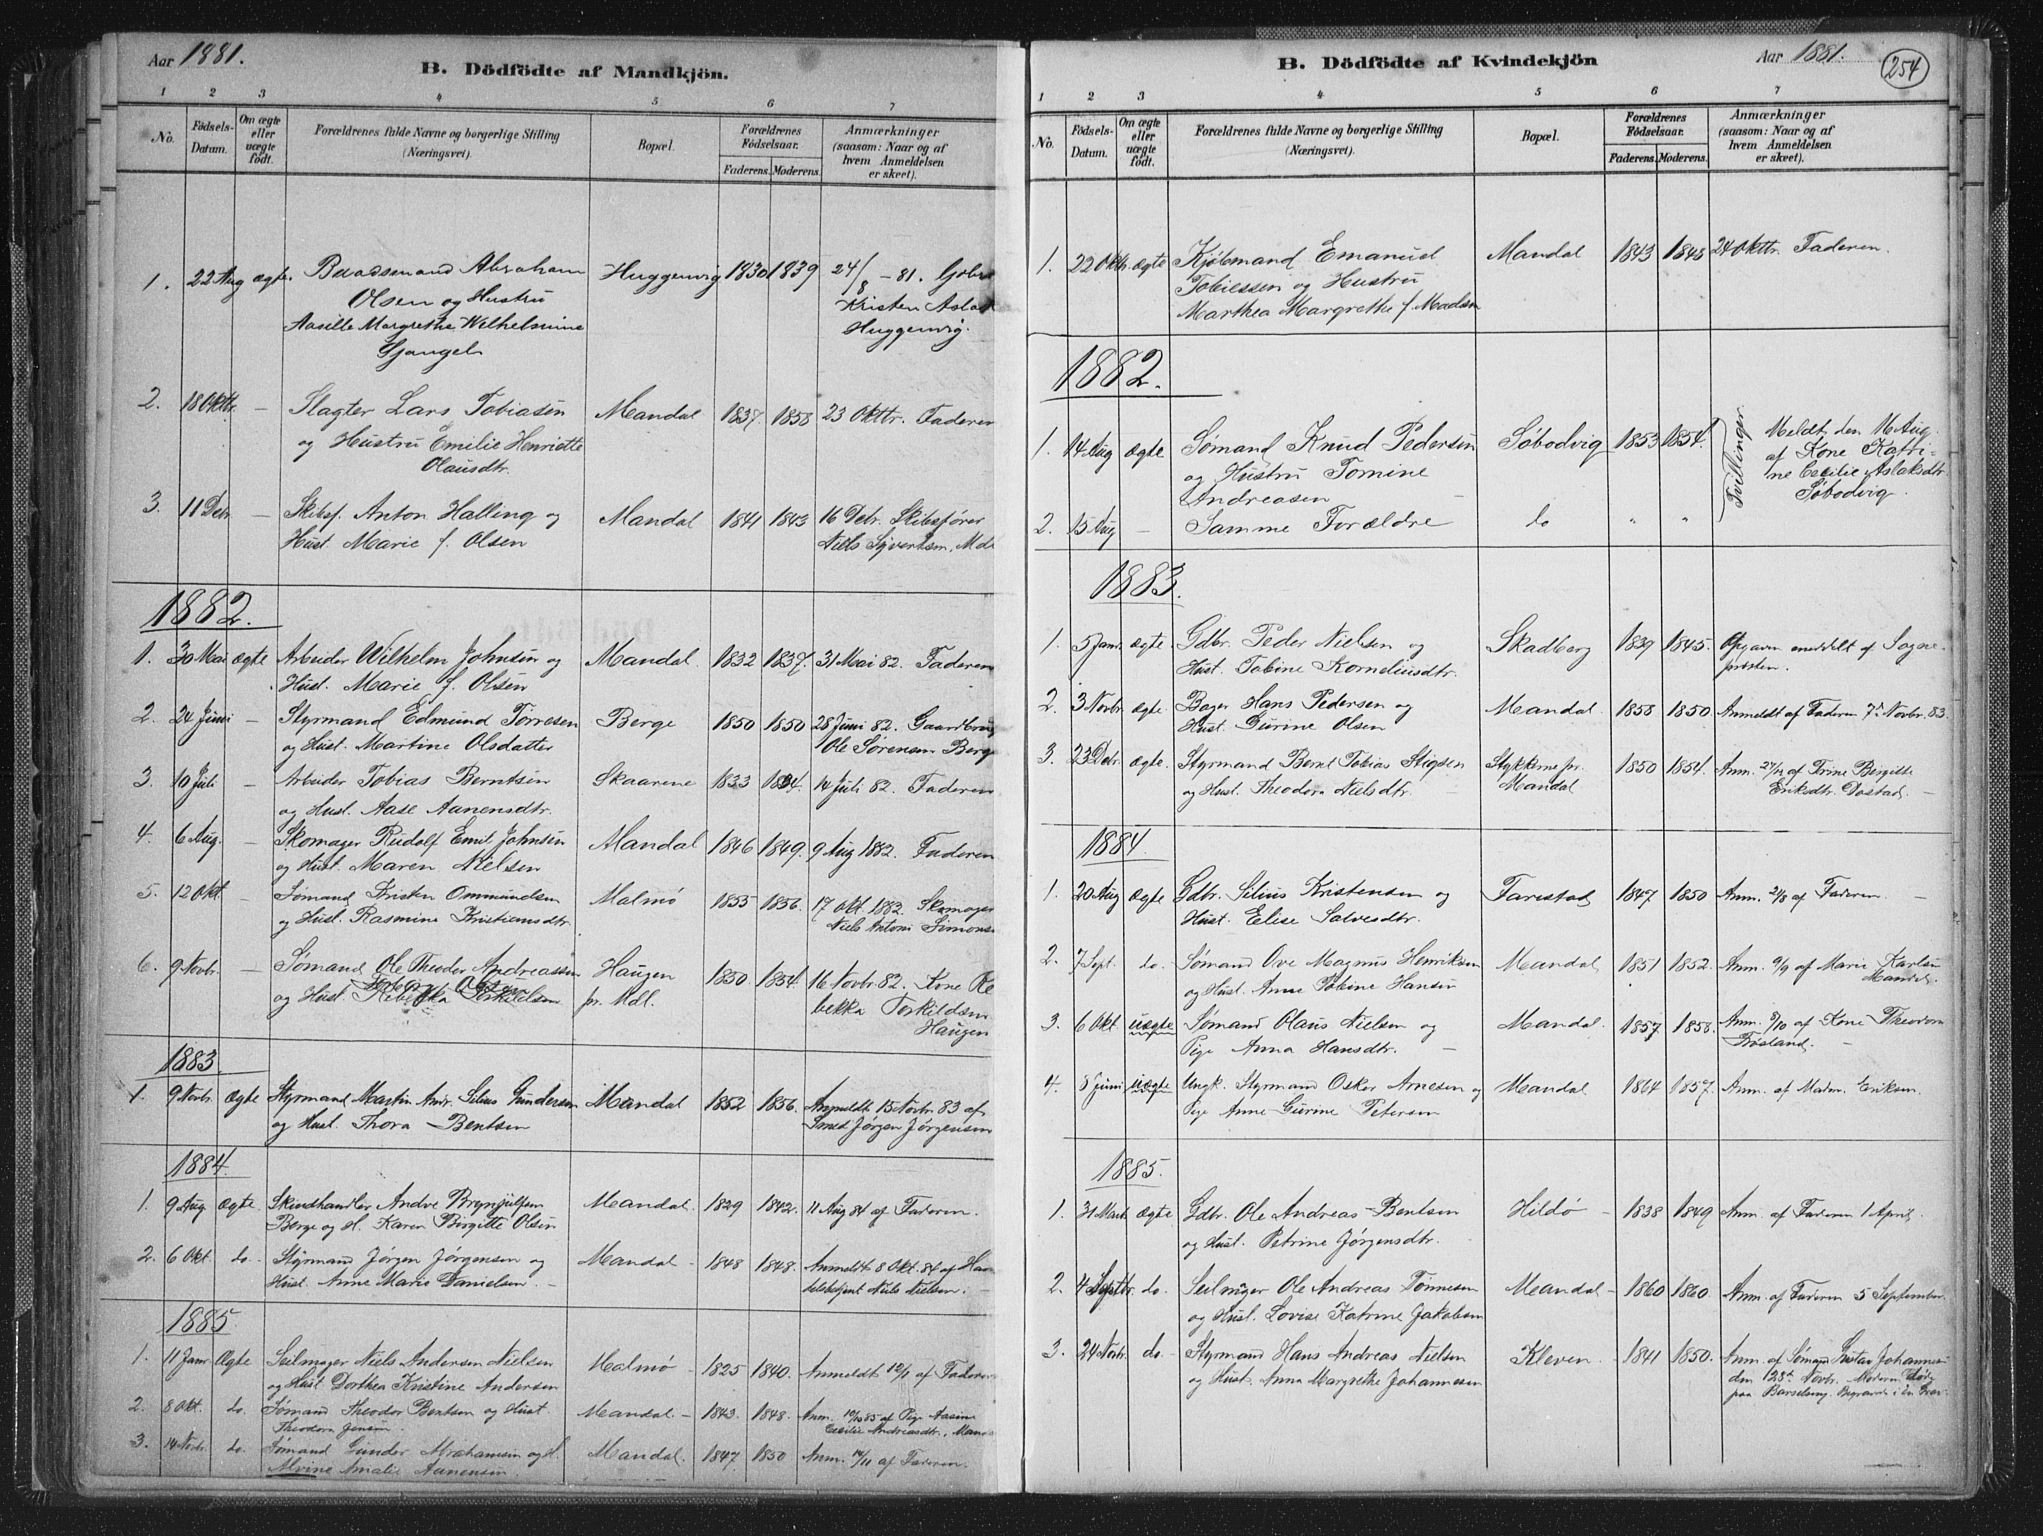 Aar 1881.
B. Dödfödte af Mandkjön.
1 2 3 4 5 6 7
No. Födsels-Datum. Om ægte eller uægte födt. Forældrenes fulde Navne og borgerlige Stilling (Næringsvei). Bopæl. Forældrenes Födselsaar. Faderens. Moderens. Anmærkninger (saasom: Naar og af hvem Anmeldelsen er skeet).
1. 22 Aug ægte. Baadsmand Abraham Huggenvig 1830 1839 24/8 - 81.
Olsen og Hustru Kristen
Aasille Margrethe Wilhelmine Huggenvig.
Gjangel
2. 18 Oktbr. — Slagter Lars Tobiasen Mandal 1837. 1858 23 Oktbr. Faderen
og Hustru Emilie Henriette
Olausdtr.
3. 11 Debr. — Skibsf. Anton Halling og Mandal 1841 1843 16 Debr. Skibsfører
Hust. Marie f. Olsen Niels Sivertsen, Mdl
1882.
1. 30 Mai ægte Arbeider Wilhelm Johnsen og Mandal. 1832 1837. 31 Mai 82. Faderen
Hust. Marie f. Olsen
2. 24 Juni — Styrmand Edmund Tørresen Berge 1850 1850 28 Juni 82. Gaardbru
og Hust. Martine Olsdatter Ole Sørensen Berge
3. 10 Juli — Arbeider Tobias Berntsen Skaarene 1833 1834. 14 Juli 82. Faderen
og Hust. Aase Aanensdtr.
4. 6 Aug. — Skomager Rudolf Emil Johnsen Mandal 1846 1849. 9 Aug 1882. Faderen
og Hust. Maren Nielsen
5. 12 Okt. — Sømand Kristen Ommundsen Malmø 1855 1856. 17 Okt. 1882. Skomager
og Hust. Rasmine Kristiansdtr. Niels Antoni Simons
6. 9 Novbr. — Sømand Ole Theodor Andreassen Haugen 1850 1854. 16 Novbr 82. Kone Re
og Hust. pr. Mdl. bekka Torkildsen
Haugen
1883.
1. 9 Novbr. ægte Styrmand Martin Andr. Silius Gundersen Mandal 1852 1856. Anmeldt 15 Novbr. 83 af
og Hust. Thora Bentsen Smed Jørgen Jørgensen
1884.
1. 9 Aug ægte Skindhandler Andre Brynjulfsen Mandal. 1829 1842. 11 Aug 84 af Faderen.
Berge og H. Karen Birgitte Olsen
2. 6 Okt. do. Styrmand Jørgen Jørgensen og Mandal - 1848 1848. Anmeldt 8 Okt. 84 af Han
Hust. Anne Marie Danielsen. — delsbetjent Niels Nielsen.
1885
1. 11 Janr Ægte Seilmager Niels Andersen Nielsen Malmø - 1825 1840. Anmeldt 12/1 af Faderen
og Hust. Dorthea Kristine Andersen
2. 8 Okt. do. Sømand Theodor Bentsen og Hust. Mandal - 1843. 1848. Anm. 10/10 85 af Pige Aasine
Theodora Jensen. Cecilie Andreasdtr., Man
3. 14 Novbr. do. Sømand Gunder Abrahamsen og H. Mandal. 1847. 1850 Anm. 14/11 af Faderen.
Alvine Amalie Aanensen.
B. Dödfödte af Kvindekjön
Aar 1881.
254
1 2 3 4 5 6 7
No. Födsels-Datum. Om ægte eller uægte födt. Forældrenes fulde Navne og borgerlige Stilling (Næringsvei). Bopæl. Forældrenes Födselsaar. Faderens. Moderens. Anmærkninger (saasom: Naar og af hvem Anmeldelsen er skeet).
1. 22 Oktbr. ægte Kjøbmand Emanuel Mandal 1843 1848 24 Oktbr. Faderen.
Tobiessen og Hustru
Marthea Margrethe f. Madsen
1882.
1. 14 Aug ægte Sømand Knud Pedersen Søbodvig 1853 1854. Tvillinger. Meldt den 16 Aug.
og Hustru Tomine af Kone Kathri-
Andreasen ne Cecilie Aslaksdtr
Søbodvig.
2. 15 Aug — Samme Forældre do " "
1883.
1. 5 Janr. ægte. Gdbr. Peder Nielsen og Skadberg 1839 1845. Opgaven meddelt af Sogne-
Hust. Tobine Korneliusdtr. præsten.
2. 3 Novbr. ægte. Bager Hans Pedersen og Mandal 1858 1850. Anmeldt af Faderen 7de Novbr. 83.
Hust. Gurine Olsen
3. 23 Debr. ægte. Styrmand Bernt Tobias Stigsen Stykkerne pr. 1850 1854. Anm. 27/12 af Trine Birgitte
og Hust. Theodora Nielsdtr. Mandal Eriksdtr.
1884.
1. 20 Aug ægte Gdbr. Silius Kristensen og Farestad 1847 1850 Anm. 21/8 af Faderen. —
Hust. Elise Salvesdtr.
2. 7 Sept. do. Sømand Ove Magnus Henriksen Mandal 1851 1852. Anm. 9/9 af Marie Karlsen
og Hust. Anne Tobine Hansen Mandal.
3. 6 Okt uægte Sømand Olaus Nielsen og Mandal. 1857. 1858. Anm. 9/10 af Kone Theodora
Pige Anna Hansdtr. — Frøsland. —
4. 8 Juni uægte Ungk. Styrmand Oskar Arnesen og Mandal 1864 1857. Anm. af Madm. Eriksen.
Pige Anne Gurine Petersen
1885.
1. 31 Marts ægte Gdbr. Ole Andreas Bentsen Hildø - 1838 1849 Anm. af Faderen 1 April.
og Hust. Petrine Jørgensdtr.
2. 4 Septbr. do. Seilmager Ole Andreas Tønnesen Mandal - 1860 1860. Anm. af Faderen 5 September.
og Hust. Lovise Katrine Jakobsen
3. 24 Novbr. do. Styrmand Hans Andreas Nielsen Kleven. 1841 1850. Anm. af Sømand Gustav Johannesen
og Hust. Anna Margrethe Johannesen den 28de Novbr. Moderen døde
paa Barselseng. Begravede i én Grav.